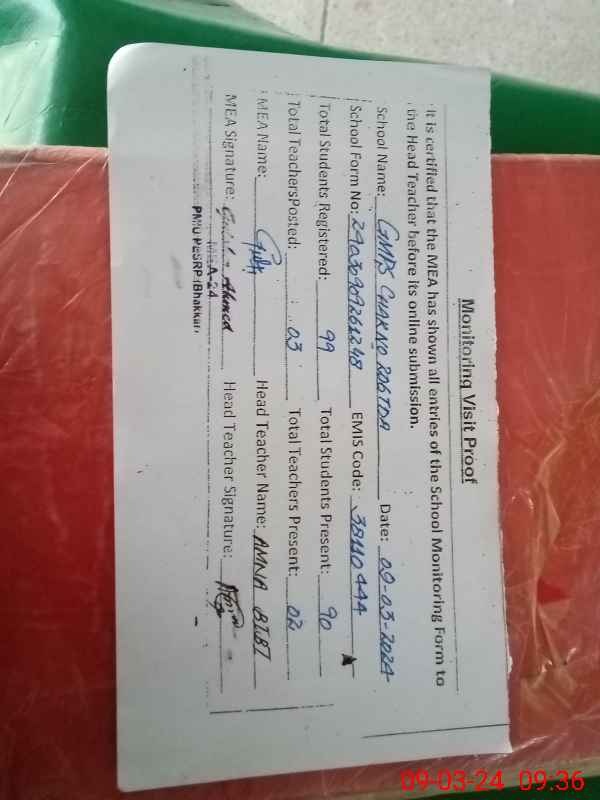 Monitoring Visit Proof
It is certified that the MEA has shown all entries of the School Monitoring Form to
the Head Teacher before its online submission.
School Name: GMPS CHAK NO 206 TDA Date: 09-03-2024
School Form No: EMIS Code: 38110444
Total Students Registered: 99 Total Students Present: 90
Total TeachersPosted: 03 Total Teachers Present: 02
MEA Name: Head Teacher Name: AMNA BIBI
MEA Signature: Ahmed Head Teacher Signature:
MEA-24
PMU PESRP (Bhakkar)
09-03-24 09:36